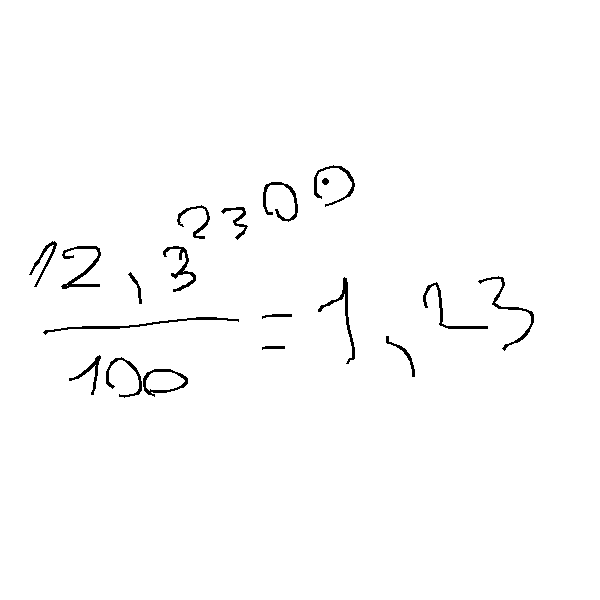 12,3^2300
100
= 1,23